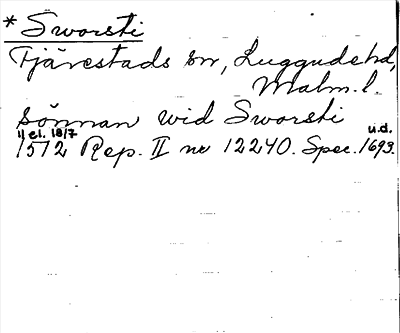 * Sworsti
Fjärestads sn, Luggudehd,
Malm. l.
sönnan wid Sworsti
11 el. 18/7 u.d.
1512 Rep. II nr 12240. Spec. 1693.